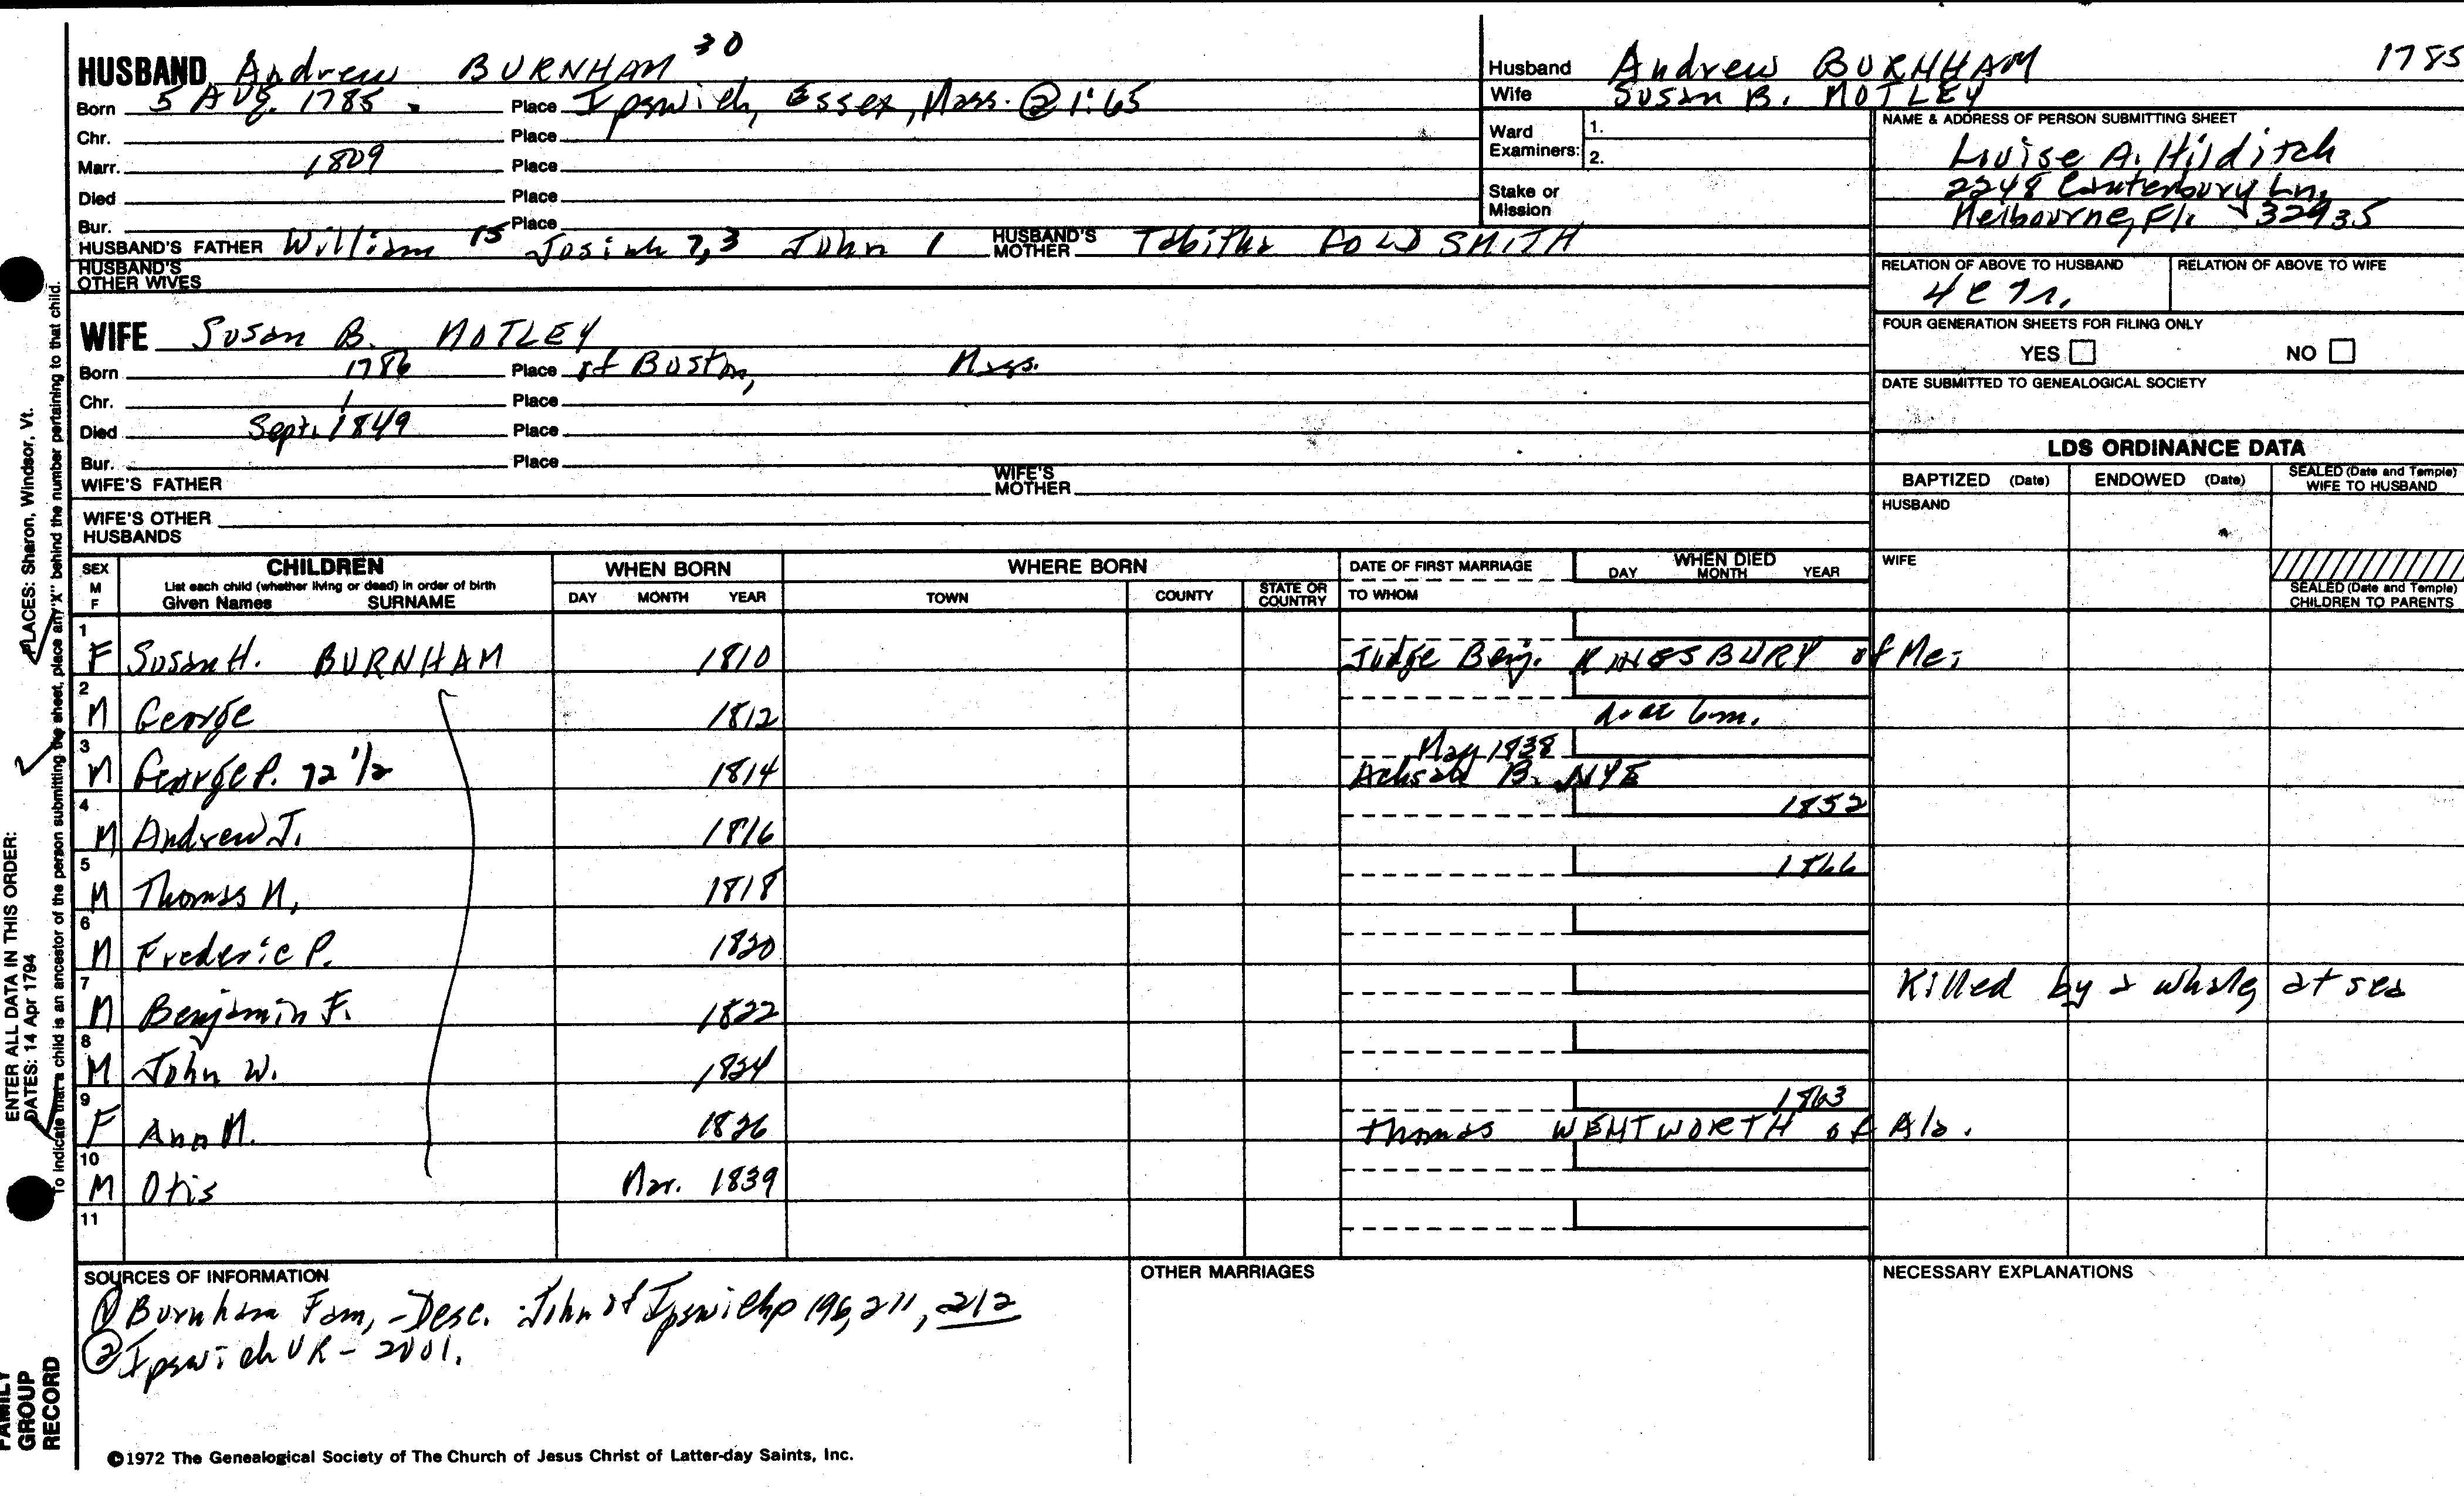 HUSBAND Andrew BURNHAM 30
Born 5 AUG. 1785. Place Ipswich, Essex, Mass. @ 1:65
Chr. Place
Marr. 1809 Place
Died Place
Bur. Place
HUSBAND'S FATHER William 15 Josiah 7,3 John 1 HUSBAND'S MOTHER Tabitha GOLDSMITH
HUSBAND'S OTHER WIVES
Husband Andrew BURNHAM 1785
Wife Susan B. MOTLEY
Ward Examiners: 1.
2.
Stake or Mission
NAME & ADDRESS OF PERSON SUBMITTING SHEET
Louise A. Hilditch
2248 Canterbury Ln,
Melbourne, Fl. 32935
RELATION OF ABOVE TO HUSBAND RELATION OF ABOVE TO WIFE
4c
FOUR GENERATION SHEETS FOR FILING ONLY
YES NO
DATE SUBMITTED TO GENEALOGICAL SOCIETY
WIFE Susan B. MOTLEY
Born 1786 Place of Boston, Mass.
Chr. Place
Died Sept. 1849 Place
Bur. Place
WIFE'S FATHER WIFE'S MOTHER
WIFE'S OTHER HUSBANDS
LDS ORDINANCE DATA
BAPTIZED (Date) ENDOWED (Date) SEALED (Date and Temple) WIFE TO HUSBAND
HUSBAND
WIFE
SEALED (Date and Temple) CHILDREN TO PARENTS
SEX M F
CHILDREN
List each child (whether living or dead) in order of birth
Given Names SURNAME
WHEN BORN
DAY MONTH YEAR
WHERE BORN
TOWN COUNTY STATE OR COUNTRY
DATE OF FIRST MARRIAGE
TO WHOM
WHEN DIED
DAY MONTH YEAR
1 F Susan H. BURNHAM 1810 Judge Benj. KINGSBURY of Me.
2 M George 1812 d. at 6m.
3 M George P. 72 1/2 1814 May 1838
Achsah B. NYE
4 M Andrew J. 1816 1852
5 M Thomas M. 1818 1866
6 M Frederic P. 1820
7 M Benjamin F. 1822 Killed by a whale at sea
8 M John W. 1824
9 F Ann M. 1826 1863
Thomas WENTWORTH of Ala.
10 M Otis Mar. 1839
11
SOURCES OF INFORMATION
① Burnham Fam, - Desc. John of Ipswich p 196, 211, 212
② Ipswich VR - 2001.
OTHER MARRIAGES
NECESSARY EXPLANATIONS
©1972 The Genealogical Society of The Church of Jesus Christ of Latter-day Saints, Inc.
ENTER ALL DATA IN THIS ORDER:
DATES: 14 Apr 1794 PLACES: Sharon, Windsor, Vt.
To indicate that a child is an ancestor of the person submitting the sheet, place an "X" behind the number pertaining to that child.
FAMILY GROUP RECORD